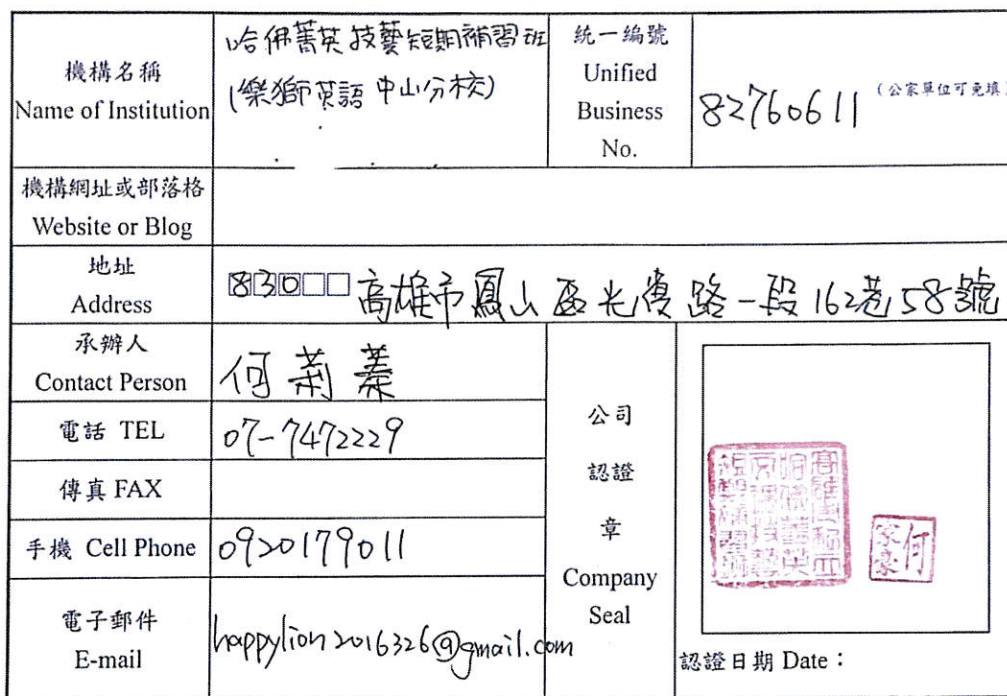 機構名稱
Name of Institution
哈佛菁英技藝短期補習班
(樂獅英語 中山分校)
統一編號
Unified
Business
No.
82760611
(公家單位可免填)
機構網址或部落格
Website or Blog
地址
Address
830 高雄市鳳山區光復路一段162巷58號
承辦人
Contact Person
何 蓁
電話 TEL
07-7472229
傳真 FAX
手機 Cell Phone
0920179011
電子郵件
E-mail
happylion2016326@gmail.com
公司
認證
章
Company
Seal
何
家豪
認證日期 Date：